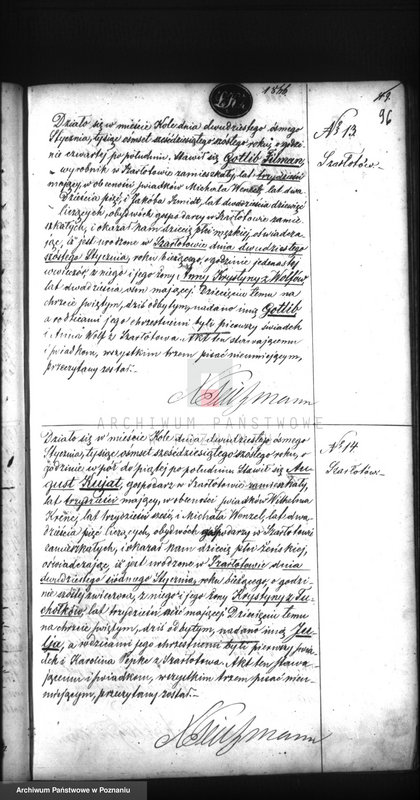 1866
96
Działo się w mieście Kole dnia dwudziestego ósmego
Stycznia, tysiąc ośmset sześćdziesiątego szóstego roku, o godzi-
nie czwartej po południu. Stawił się Gottlib Zilman,
wyrobnik w Szarłotowie zamieszkały, lat trzydzieści
mający, w obecności świadków Michała Wenzel, lat dwa-
dzieścia pięć, i Jakóba Szmidt, lat dwadzieścia dziewięć
liczących, obydwóch gospodarzy w Szarłotowie zamie-
szkałych, i okazał nam dziecię płci męzkiej, oświadcza-
jąc, iż jest urodzone w Szarłotowie dnia dwudziestego
szóstego Stycznia, roku bieżącego, o godzinie jedenastej
wieczór, z niego i jego żony Anny Krystyny z Wolfów,
lat dwadzieścia ośm mającej. Dziecięciu temu na
chrzcie świętym, dziś odbytym, nadano imię Gottlib
a rodzicami jego chrzestnemi byli pierwszy świadek
i Anna Wolf z Szarłotowa. Akt ten stawającemu
i świadkom, wszystkim trzem pisać nieumiejącym,
przeczytany został.
No 13
Szarłotów
ARCHIWUM PAŃSTWOWE
Działo się w mieście Kole dnia dwudziestego ósmego
Stycznia, tysiąc ośmset sześćdziesiątego szóstego roku, o
godzinie w pół do piątej po południu. Stawił się Au-
gust Kujat, gospodarz w Szarłotowie zamieszkały,
lat trzydzieści mający, w obecności świadków Wilhelma
lat trzydzieści sześć i Michała Wenzel, lat dwa-
dzieścia pięć liczących, obydwóch gospodarzy w Szarłotowie
zamieszkałych, i okazał nam dziecię płci żeńskiej,
oświadczając, iż jest urodzone w Szarłotowie dnia
dwudziestego siódmego Stycznia, roku bieżącego, o godzi-
nie szóstej z wieczora, z niego i jego żony Krystyny z Tu-
chołków, lat trzydzieści mającej. Dziecięciu temu
na chrzcie świętym, dziś odbytym, nadano imię Jul-
ja, a rodzicami jego chrzestnemi byli pierwszy świa-
dek i Karolina Pepke z Szarłotowa. Akt ten stawa-
jącemu i świadkom, wszystkim trzem pisać nieu-
miejącym, przeczytany został.
No 14
Szarłotów
Archiwum Państwowe w Poznaniu